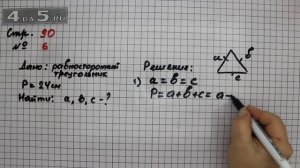 4da5.ru
Стр. 90
№ 6
Дано: равносторонний
треугольник
P = 24см
Найти: a, b, c - ?
Решение:
a b
c
1) a = b = c
P = a + b + c = a